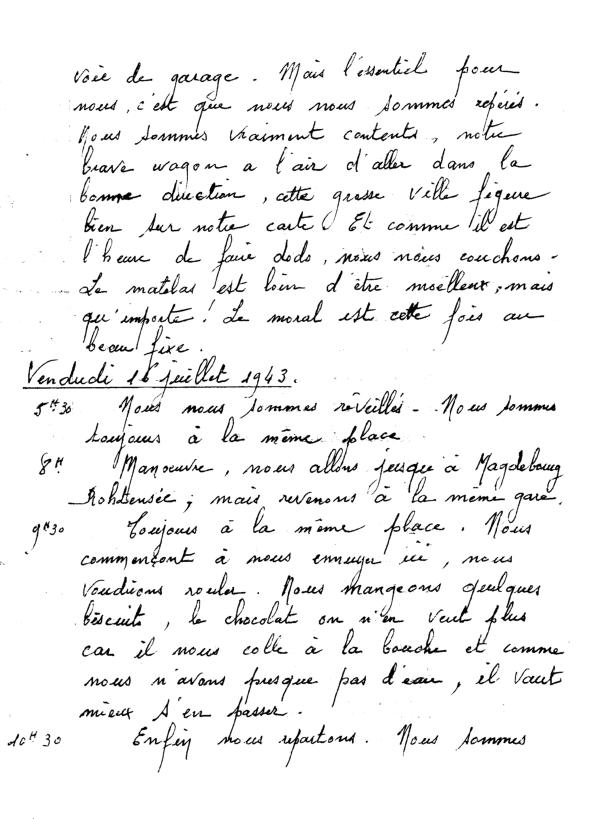 voie de garage. Mais l'essentiel pour
nous, c'est que nous nous sommes repérés.
Nous sommes vraiment contents, notre
brave wagon a l'air d'aller dans la
bonne direction, cette grosse ville figure
bien sur notre carte. Et comme il est
l'heure de faire dodo, nous nous couchons.
Le matelas est loin d'être moëlleux, mais
qu'importe! Le moral est cette fois au
beau fixe.
Vendredi 16 juillet 1943.
5H30 Nous nous sommes réveillés. Nous sommes
toujours à la même place
8H Manoeuvre, nous allons jusqu'à Magdebourg
Rohtensée, mais revenons à la même gare.
9H30 Toujours à la même place. Nous
commençont à nous ennuyer ici, nous
voudrions rouler. Nous mangeons quelques
biscuits, le chocolat on n'en veut plus
car il nous colle à la bouche et comme
nous n'avons presque pas d'eau, il vaut
mieux s'en passer.
10H30 Enfin nous repartons. Nous sommes